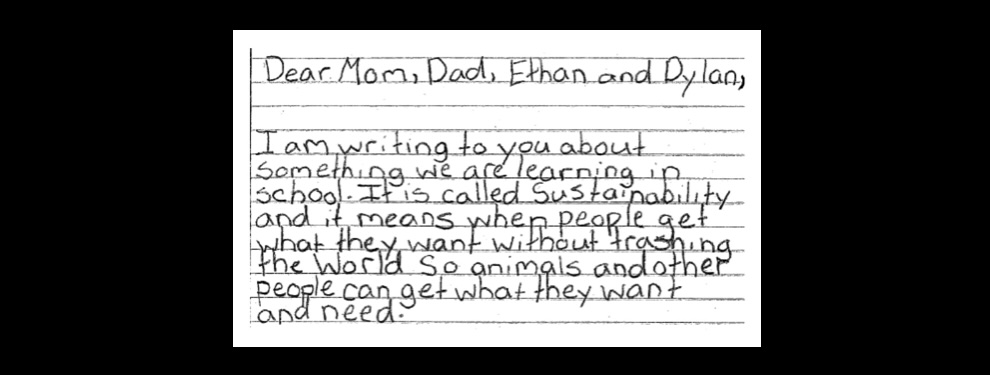 Dear Mom, Dad, Ethan and Dylan,
I am writing to you about
something we are learning in
school. It is called Sustainability
and it means when people get
what they want without trashing
the World So animals and other
people can get what they want
and need.